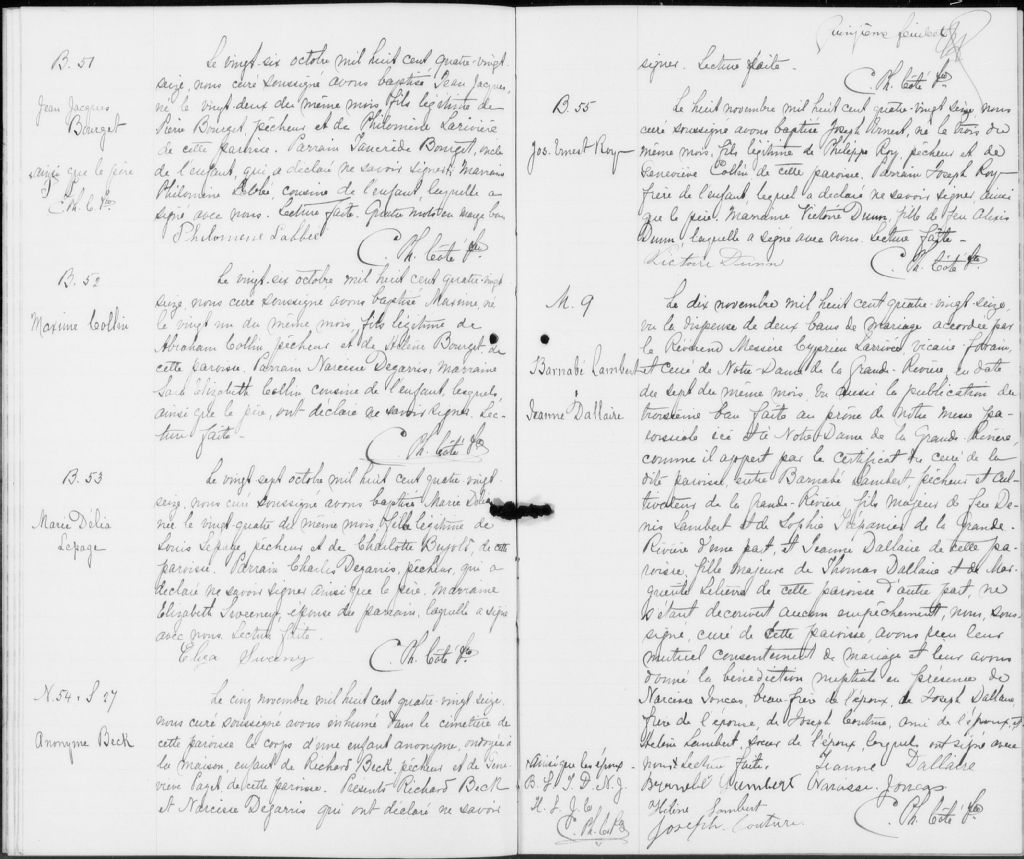 B. 51
Jean Jacques
Bourget
ainsi que le père
C. Ph. C Ptre
Le vingt-six octobre mil huit cent quatre-vingt-
seize, nous curé soussigné avons baptisé Jean Jacques,
né le vingt-deux du même mois, fils légitime de
Pierre Bourget, pêcheur et de Philomène Larivière
de cette paroisse. Parrain Tancrède Bourget, oncle
de l'enfant, qui a déclaré ne savoir signer, Marraine
Philomène Labbé, cousine de l'enfant, laquelle a
signé avec nous. Lecture faite. Quatre mots en marge bons
Philomene Labbee
C. Ph. Côté Ptre
B. 52
Maxime Collin
Le vingt-six octobre mil huit cent quatre-vingt
seize, nous curé soussigné avons baptisé Maxime, né
le vingt un du même mois, fils légitime de
Abraham Collin pêcheur et de Hélène Bourget, de
cette paroisse. Parrain Narcisse Degarris; marraine
Elizabeth Collin cousine de l'enfant, lesquels,
ainsi que le père, ont déclaré ne savoir signer. Lec-
ture faite-
C. Ph. Côté Ptre
B. 53
Marie Délia
Lepage
Le vingt-sept octobre mil huit cent quatre-vingt-
seize, nous curé soussigné avons baptisé Marie Délia
née le vingt-quatre du même mois, fille légitime de
Louis Lepage, pêcheur et de Charlotte Bujold, de cette
paroisse. Parrain Charles Degarris, pêcheur, qui a
déclaré ne savoir signer ainsi que le père. Marraine
Elizabeth Sweeney, épouse du parrain, laquelle a signé
avec nous. Lecture faite.
Eliza Sweeney
C. Ph. Côté Ptre
N. 54 & S 27
Anonyme Beck
Le cinq novembre mil huit cent quatre-vingt seize,
nous curé soussigné avons inhumé dans le cimetière de
cette paroisse le corps d'une enfant anonyme, ondoyée à
la maison, enfant de Richard Beck, pêcheur et de Gene-
viève Paget de cette paroisse. Présents Richard Beck
et Narcisse Degarris qui ont déclaré ne savoir
Quinzième feuillet
signer. Lecture faite.
C. Ph. Côté Ptre
B. 55
Jos. Ernest Roy
Le huit novembre mil huit cent quatre-vingt seize, nous
curé soussigné avons baptisé Joseph Ernest, né le trois du
même mois, fils légitime de Philippe Roy, pêcheur et de
Geneviève Collin de cette paroisse. Parrain Joseph Roy
frère de l'enfant, lequel a déclaré ne savoir signer, ainsi
que le père. Marraine Victoire Dunn, fille de feu Alexis
Dunn, laquelle a signé avec nous. Lecture faite-
Victoire Dunn
C. Ph. Côté Ptre
M. 9
Barnabé Lambert
&
Jeanne Dallaire
Le dix novembre mil huit cent quatre-vingt-seize,
vu la dispense de deux bans de mariage accordée par
le Révérend Messire Cyprien Larrivée, Vicaire-forain,
et curé de Notre-Dame de la Grande-Rivière, en date
du sept du même mois. Vu aussi la publication du
troisième ban faite au prône de notre messe pa-
roissiale ici et à Notre-Dame de la Grande-Rivière,
comme il appert par le certificat du curé de la
dite paroisse, entre Barnabé Lambert, pêcheur et cul-
tivateur de la Grande-Rivière, fils majeur de feu De-
nis Lambert et de Sophie Trépanier de la Grande-
Rivière d'une part, et Jeanne Dallaire de cette pa-
roisse, fille majeure de Thomas Dallaire et de Mar-
guerite Lelièvre de cette paroisse d'autre part, ne
s'étant découvert aucun empêchement, nous, sous-
signé, curé de cette paroisse, avons reçu leur
mutuel consentement de mariage et leur avons
donné la bénédiction nuptiale en présence de
Narcisse Joncas, beau-frère de l'époux, de Joseph Dallaire,
frère de l'épouse, de Joseph Couture, ami de l'époux, et
Hélène Lambert, soeur de l'époux, lesquels ont signé avec
nous. Lecture faite.
Jeanne Dallaire
Ainsi que les époux-
B. L J. D. N. J.
H. L J. C
C. Ph. C Ptre
Barnabé Lambert Narcisse Joncas
Hélène Lambert
Joseph Couture
C. Ph. Côté Ptre